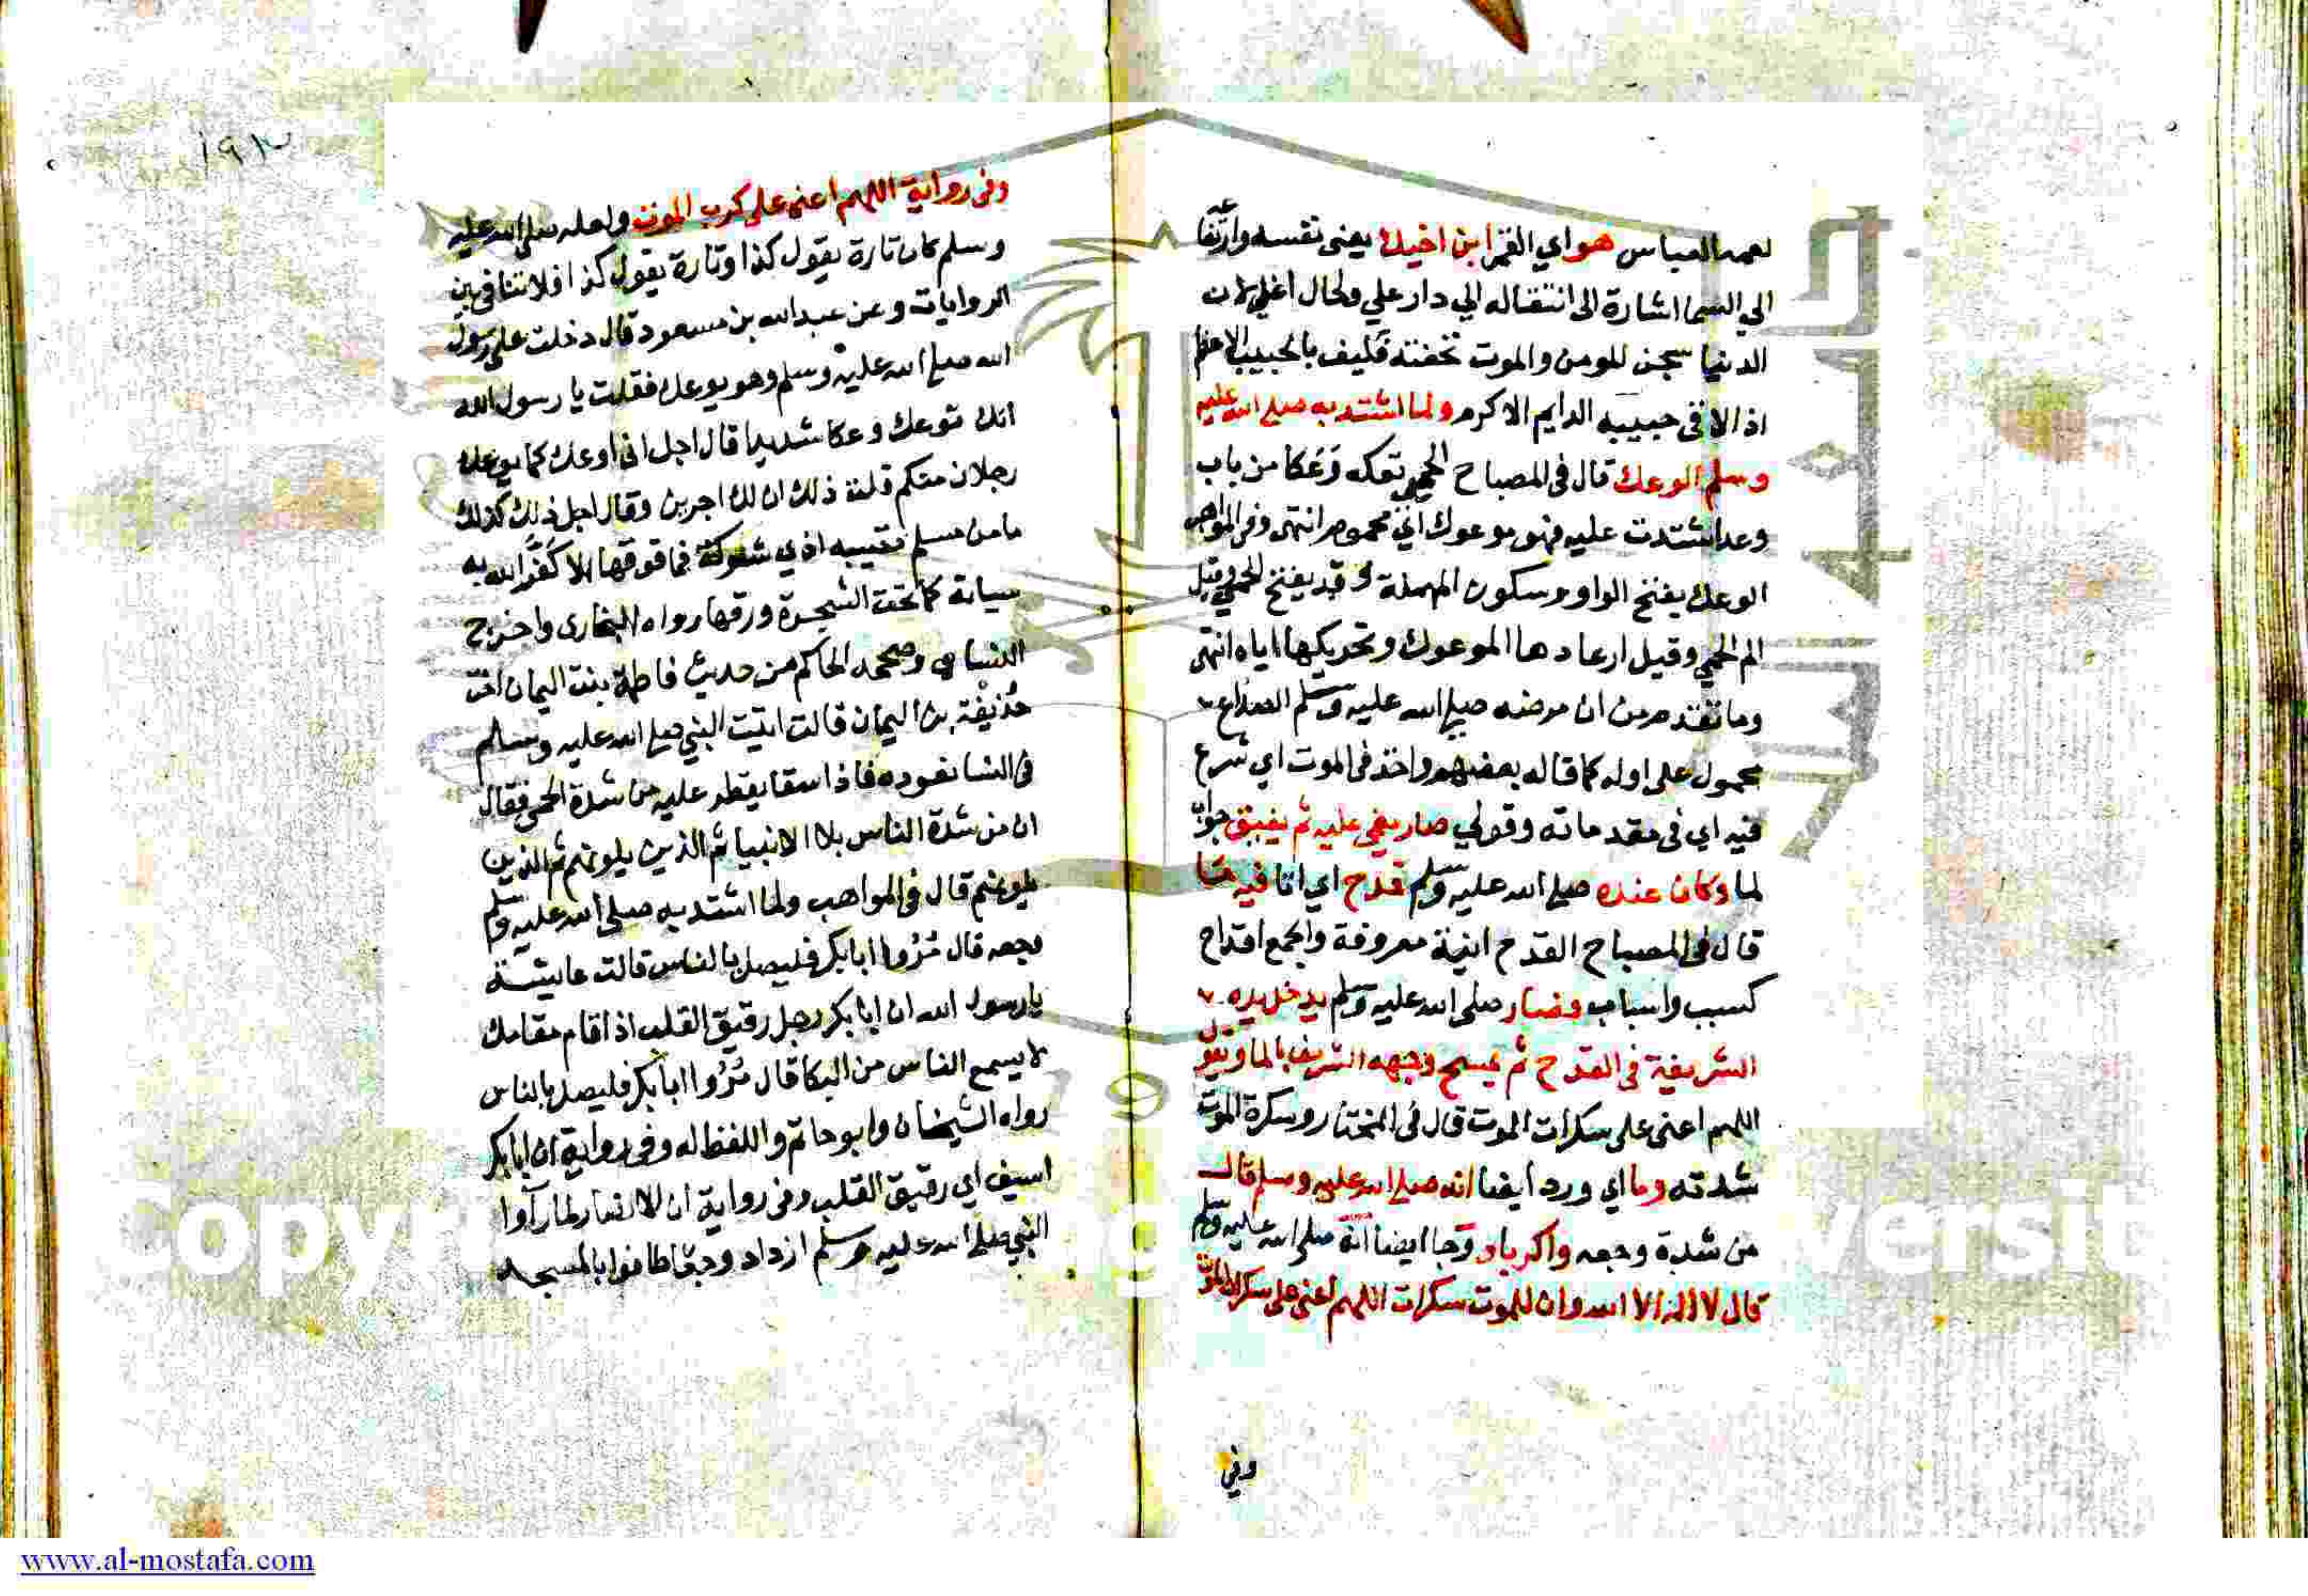 لعمه العباس هو اي القمر ابن اخيك يعني نفسه وارتفا
الي السما اشارة الى انتقاله الي دار علي ولحال اغلي لان
الدنيا سجن للمومن والموت تحفته فكيف بالحبيب الاعظم
اذ الاقى حبيبه الدايم الاكرم ولما اشتد به صلى الله عليه
وسلم الوعك قال في المصباح الحمى توعكه وعكا من باب
وعد اشتدت عليه فهو موعوك اي محموم انتهى وفي المواهب
الوعك بفتح الواو وسكون المهملة وقد يفتح الحمى وقيل
الم الحمي وقيل ارعادها الموعوك وتحريكها اياه انتهى
وما تقدم من ان مرضه صلى الله عليه وسلم الصداع
محمول على اوله كما قاله بعضهم واخذ في الموت اي شرع
فيه اي في مقدماته وقولي صار يغمى عليه ثم يفيق جواب
لما وكان عنده صلى الله عليه وسلم قدح اي انا فيه ما
قال في المصباح القدح انية معروفة والجمع اقداح
كسبب واسباب فصار صلى الله عليه وسلم يدخل يده
الشريفة في القدح ثم يمسح وجهه الشريف بالما ويقول
اللهم اعني على سكرات الموت قال في المختار وسكرة الموت
شدته وما اي ورد ايضا انه صلى الله عليه وسلم قال
من شدة وجعه واكرباه وجا ايضا انه صلى الله عليه وسلم
قال لا اله الا الله وان للموت سكرات اللهم اعني على سكرات الموت
وفي
١٩٣
وفي رواية اللهم اعني على كرب الموت ولعله صلى الله عليه
وسلم كان تارة يقول كذا وتارة يقول كذا فلا تنافي بين
الروايات وعن عبدالله بن مسعود قال دخلت على رسول
الله صلى الله عليه وسلم وهو يوعك فقلت يا رسول الله
انك توعك وعكا شديدا قال اجل اني اوعك كما يوعك
رجلان منكم قلت ذلك ان لك اجرين وقال اجل ذلك كذلك
ما من مسلم يصيبه اذي شوكة فما فوقها الا كفر الله به
سياته كما تحت الشجرة ورقها رواه البخارى واخرج
النساى وصححه الحاكم من حديث فاطمة بنت اليمان اخت
حذيفة بن اليمان قالت اتيت النبي صلى الله عليه وسلم
في النسا نعوده فاذا سقا يقطر عليه من شدة الحمى فقال
ان من شدة الناس بلا الانبيا ثم الذين يلونهم ثم الذين
يلونهم قال في المواهب ولما اشتد به صلى الله عليه وسلم
وجعه قال مروا ابابكر فليصل بالناس قالت عايشة
يا رسول الله ان ابا بكر رجل رقيق القلب اذا قام مقامك
لا يسمع الناس من البكا قال مروا ابابكر فليصل بالناس
رواه الشيخان وابو حاتم واللفظ له وفي رواية ان ابابكر
اسيف اي رقيق القلب وفي رواية ان الانصار لما رآوا
النبي صلى الله عليه وسلم ازداد وجعا طافوا بالمسجد
www.al-mostafa.com